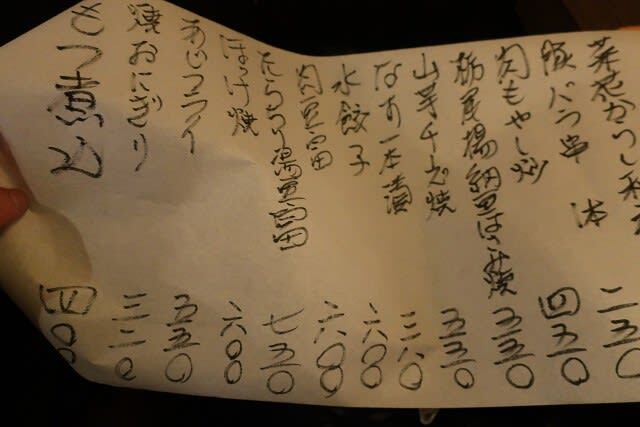 菜花からし和
豚バラ串 本 二五〇
肉もやし炒 四五〇
栃尾揚納豆はさみ焼 五五〇
山芋チーズ焼 五五〇
なす一本漬 三八〇
水餃子 六〇〇
肉豆富 六〇〇
たらちり湯豆富 七五〇
ほっけ焼 六〇〇
あじフライ 五五〇
焼おにぎり 三二〇
もつ煮込 四〇〇